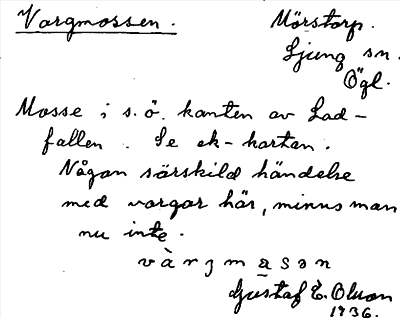 Vargmossen.
Mörstorp.
Ljung sn.
Ögl.
Mosse i s.ö. kanten av Lad-
fallen. Se ek-kartan.
Någon särskild händelse
med vargar här, minns man
nu inte.
Gustaf E. Olson
1936.